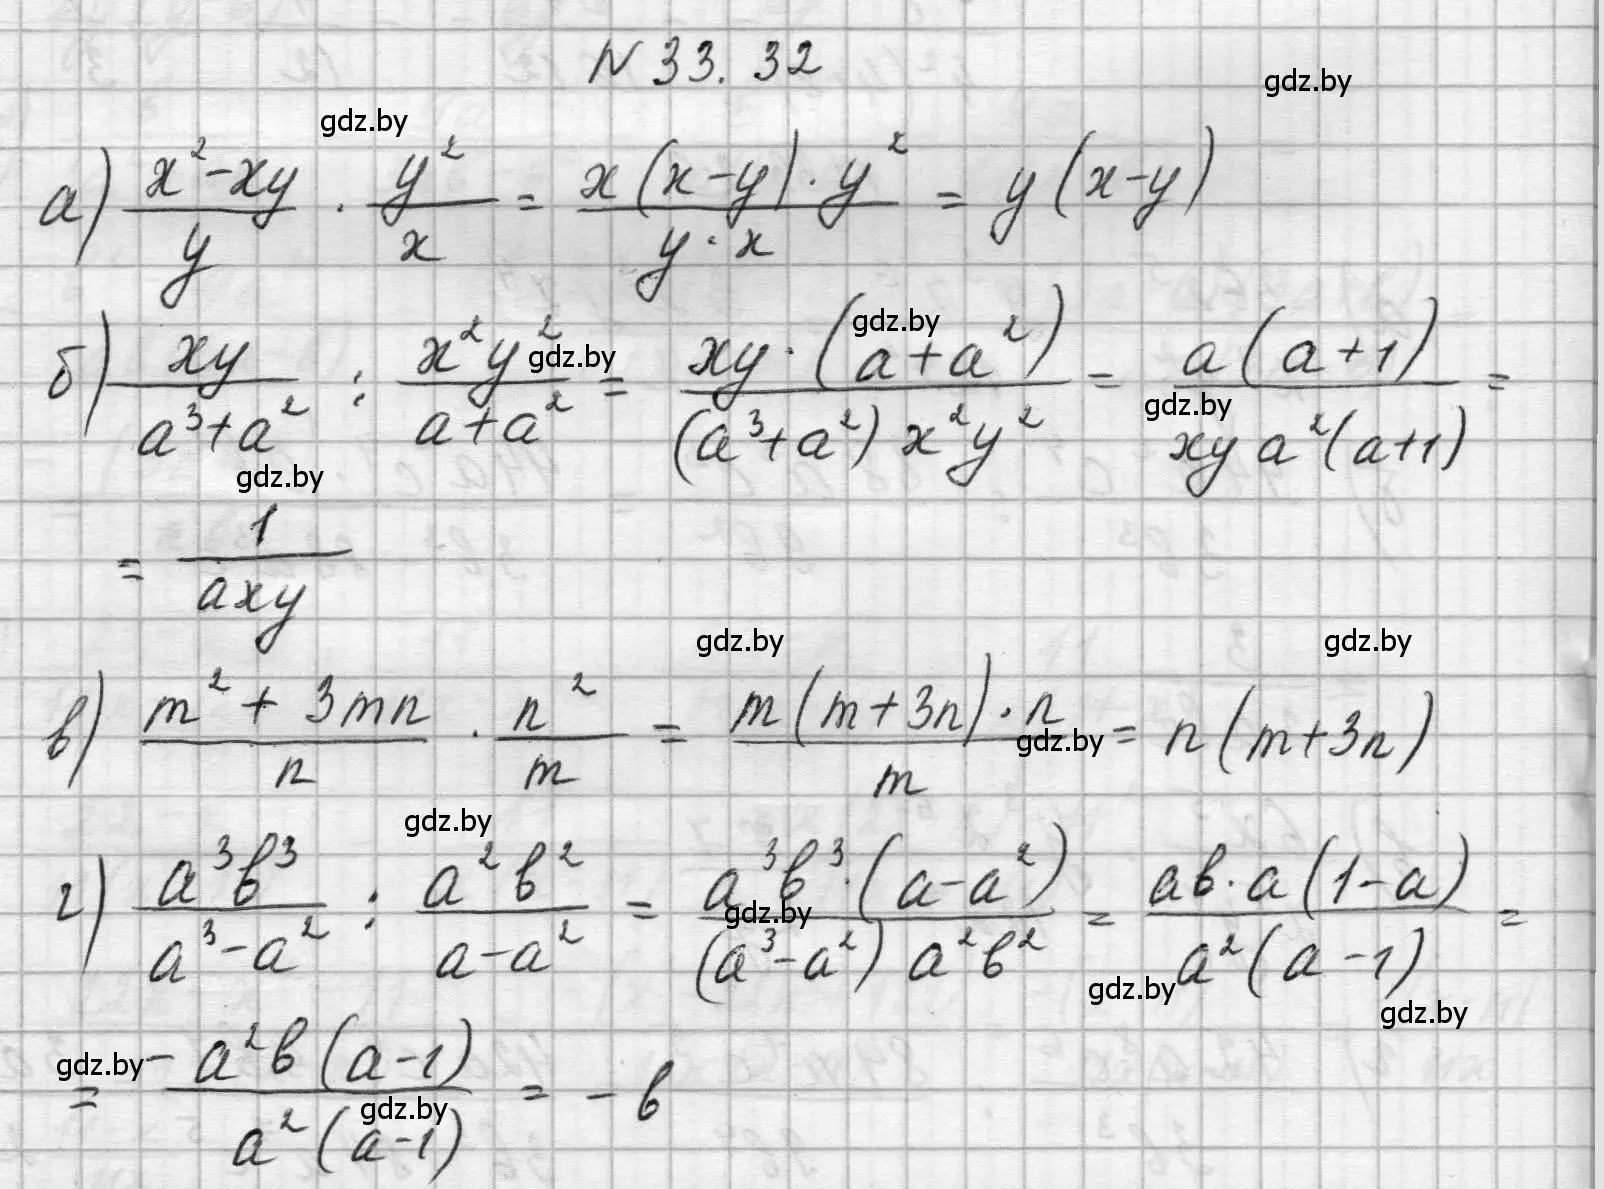 N 33. 32
gdz.by
gdz.by
а) (x² - xy)/y · y²/x = (x(x-y) · y²)/(y · x) = y(x-y)
gdz.by
gdz.by
б) xy/(a³+a²) : x²y²/(a+a²) = (xy · (a+a²))/((a³+a²) x²y²) = (a(a+1))/(xy a²(a+1)) =
gdz.by
gdz.by
= 1/(axy)
gdz.by
gdz.by
в) (m² + 3mn)/n · n²/m = (m(m+3n) · n)/m = n(m+3n)
gdz.by
gdz.by
г) a³b³/(a³-a²) : a²b²/(a-a²) = (a³b³ · (a-a²))/((a³-a²) a²b²) = (ab · a(1-a))/(a²(a-1)) =
gdz.by
gdz.by
gdz.by
= (-a²b(a-1))/(a²(a-1)) = -b
gdz.by
gdz.by